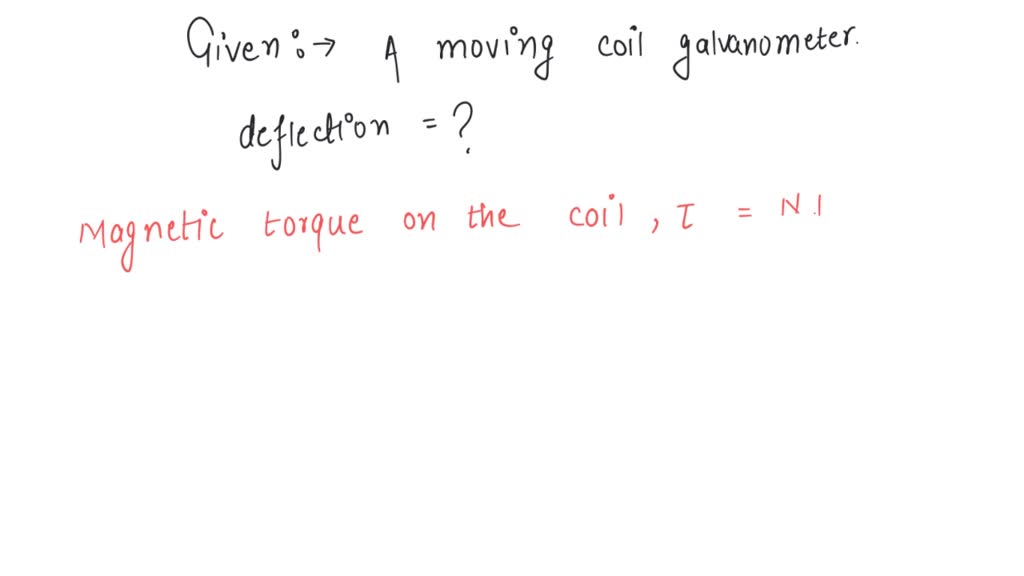 Given:→ A moving coil galvanometer.
deflection = ?
Magnetic torque on the coil, τ = N.I